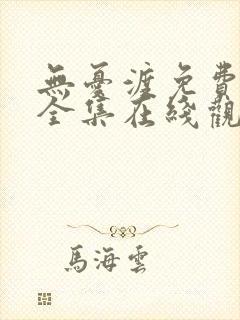 無憂渡免費
全集在綫觀
馬海雲